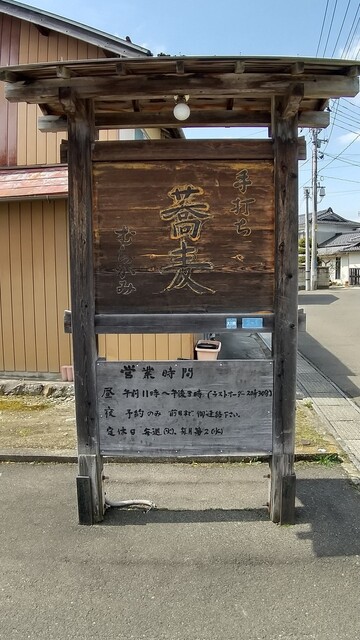 手打ち
蕎麦
むらかみ
営業時間
昼 午前11時〜午後3時 (ラストオーダー2時30分)
夜 予約のみ 前日まで御連絡下さい。
定休日 毎週(火)、毎月第2(水)